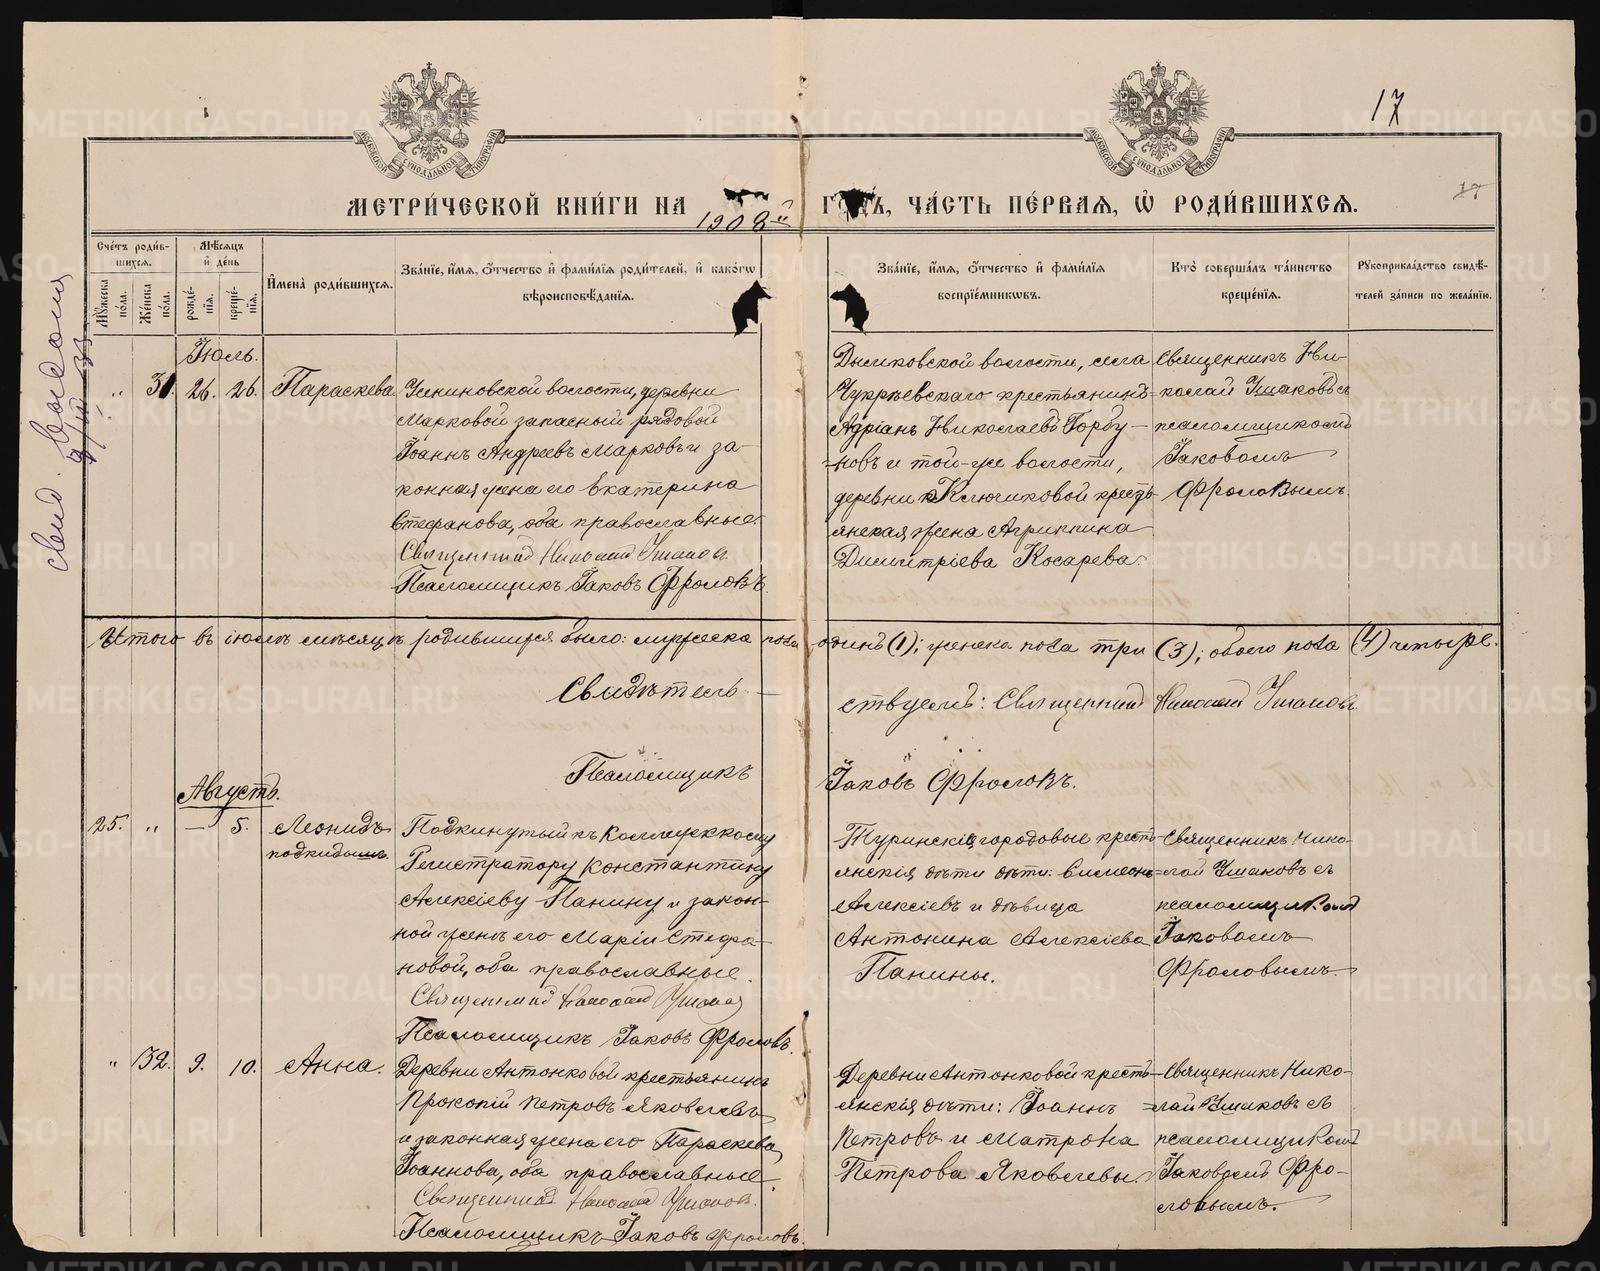 17
17
МОСКОВСКОЙ СѴНОДАЛЬНОЙ ТИПОГРАФІИ
МОСКОВСКОЙ СѴНОДАЛЬНОЙ ТИПОГРАФІИ
МЕТРИ́ЧЕСКОЙ КНИ́ГИ НА 1908й ГО́ДЪ, ЧА́СТЬ ПЕ́РВАЯ, Ѡ҆ РОДИ́ВШИХСЯ.
Сче́тъ роди́в-
шихся.
Мꙋ́жеска по́ла.
Же́нска по́ла.
Мѣ́сяцъ
и҆ де́нь
рожде́-
нїя.
креще́-
нїя.
И҆мена̀ роди́вшихся.
Зва́нїе, и҆́мя, ѻ҆́тчество и҆ фами́лїя роди́телей, и҆ како́гѡ
вѣроисповѣ́данїя.
Зва́нїе, и҆́мя, ѻ҆́тчество и҆ фами́лїя
воспрїе́мникѡвъ.
Кто̀ соверша́лъ та́инство
креще́нїя.
Рꙋкоприкла́дство свидѣ́-
телей за́писи по жела́нїю.
Іюль.
" 31. 26. 26. Параскева
Усениновской волости, деревни
Марковой запасный рядовой
Іоаннъ Андреевъ Марковъ и за-
конная жена его Екатерина
Стефанова, оба православные.
Священникъ Николай Ушаковъ
Псаломщикъ Іаковъ Фроловъ.
Дымковской волости, села
Чукреевскаго крестьянинъ
Адріанъ Николаевъ Горбу-
=новъ и той-же волости,
деревни Ключиковой кресть-
янская жена Агриппина
Димитріева Косарева.
Священникъ Ни-
колай Ушаковъ съ
псаломщикомъ
Іаковомъ
Фроловымъ.
Итого въ іюлѣ мѣсяцѣ родившихся было: мужеска пола одинъ (1); женска пола три (3); обоего пола (4) четыре.
Свидѣтель-
ствуемъ: Священникъ Николай Ушаковъ
Псаломщикъ Іаковъ Фроловъ.
Августъ.
25. " — 5. Леонидъ
подкидышъ.
Подкинутый къ Коллежскому
Регистратору Константину
Алексіеву Панину и закон-
ной женѣ его Маріи Стефа-
новой, оба православные.
Священникъ Николай Ушаковъ
Псаломщикъ Іаковъ Фроловъ.
Туринскія городовые кресть-
янскія дѣти дѣти: Симеонъ
Алексіевъ и дѣвица
Антонина Алексіева
Панины.
Священникъ Нико-
=лай Ушаковъ съ
псаломщикомъ
Іаковомъ
Фроловымъ.
" 32. 9. 10. Анна.
Деревни Антонковой крестьянинъ
Прокопій Петровъ Яковлевъ
и законная жена его Параскева
Іоаннова, оба православные.
Священникъ Николай Ушаковъ.
Псаломщикъ Іаковъ Фроловъ.
Деревни Антонковой кресть-
янскія дѣти: Іоаннъ
Петровъ и Матрона
Петрова Яковлевы.
Священникъ Нико-
=лай Ушаковъ съ
псаломщикомъ
Іаковомъ Фро-
ловымъ.
METRIKI.GASO-URAL.RU